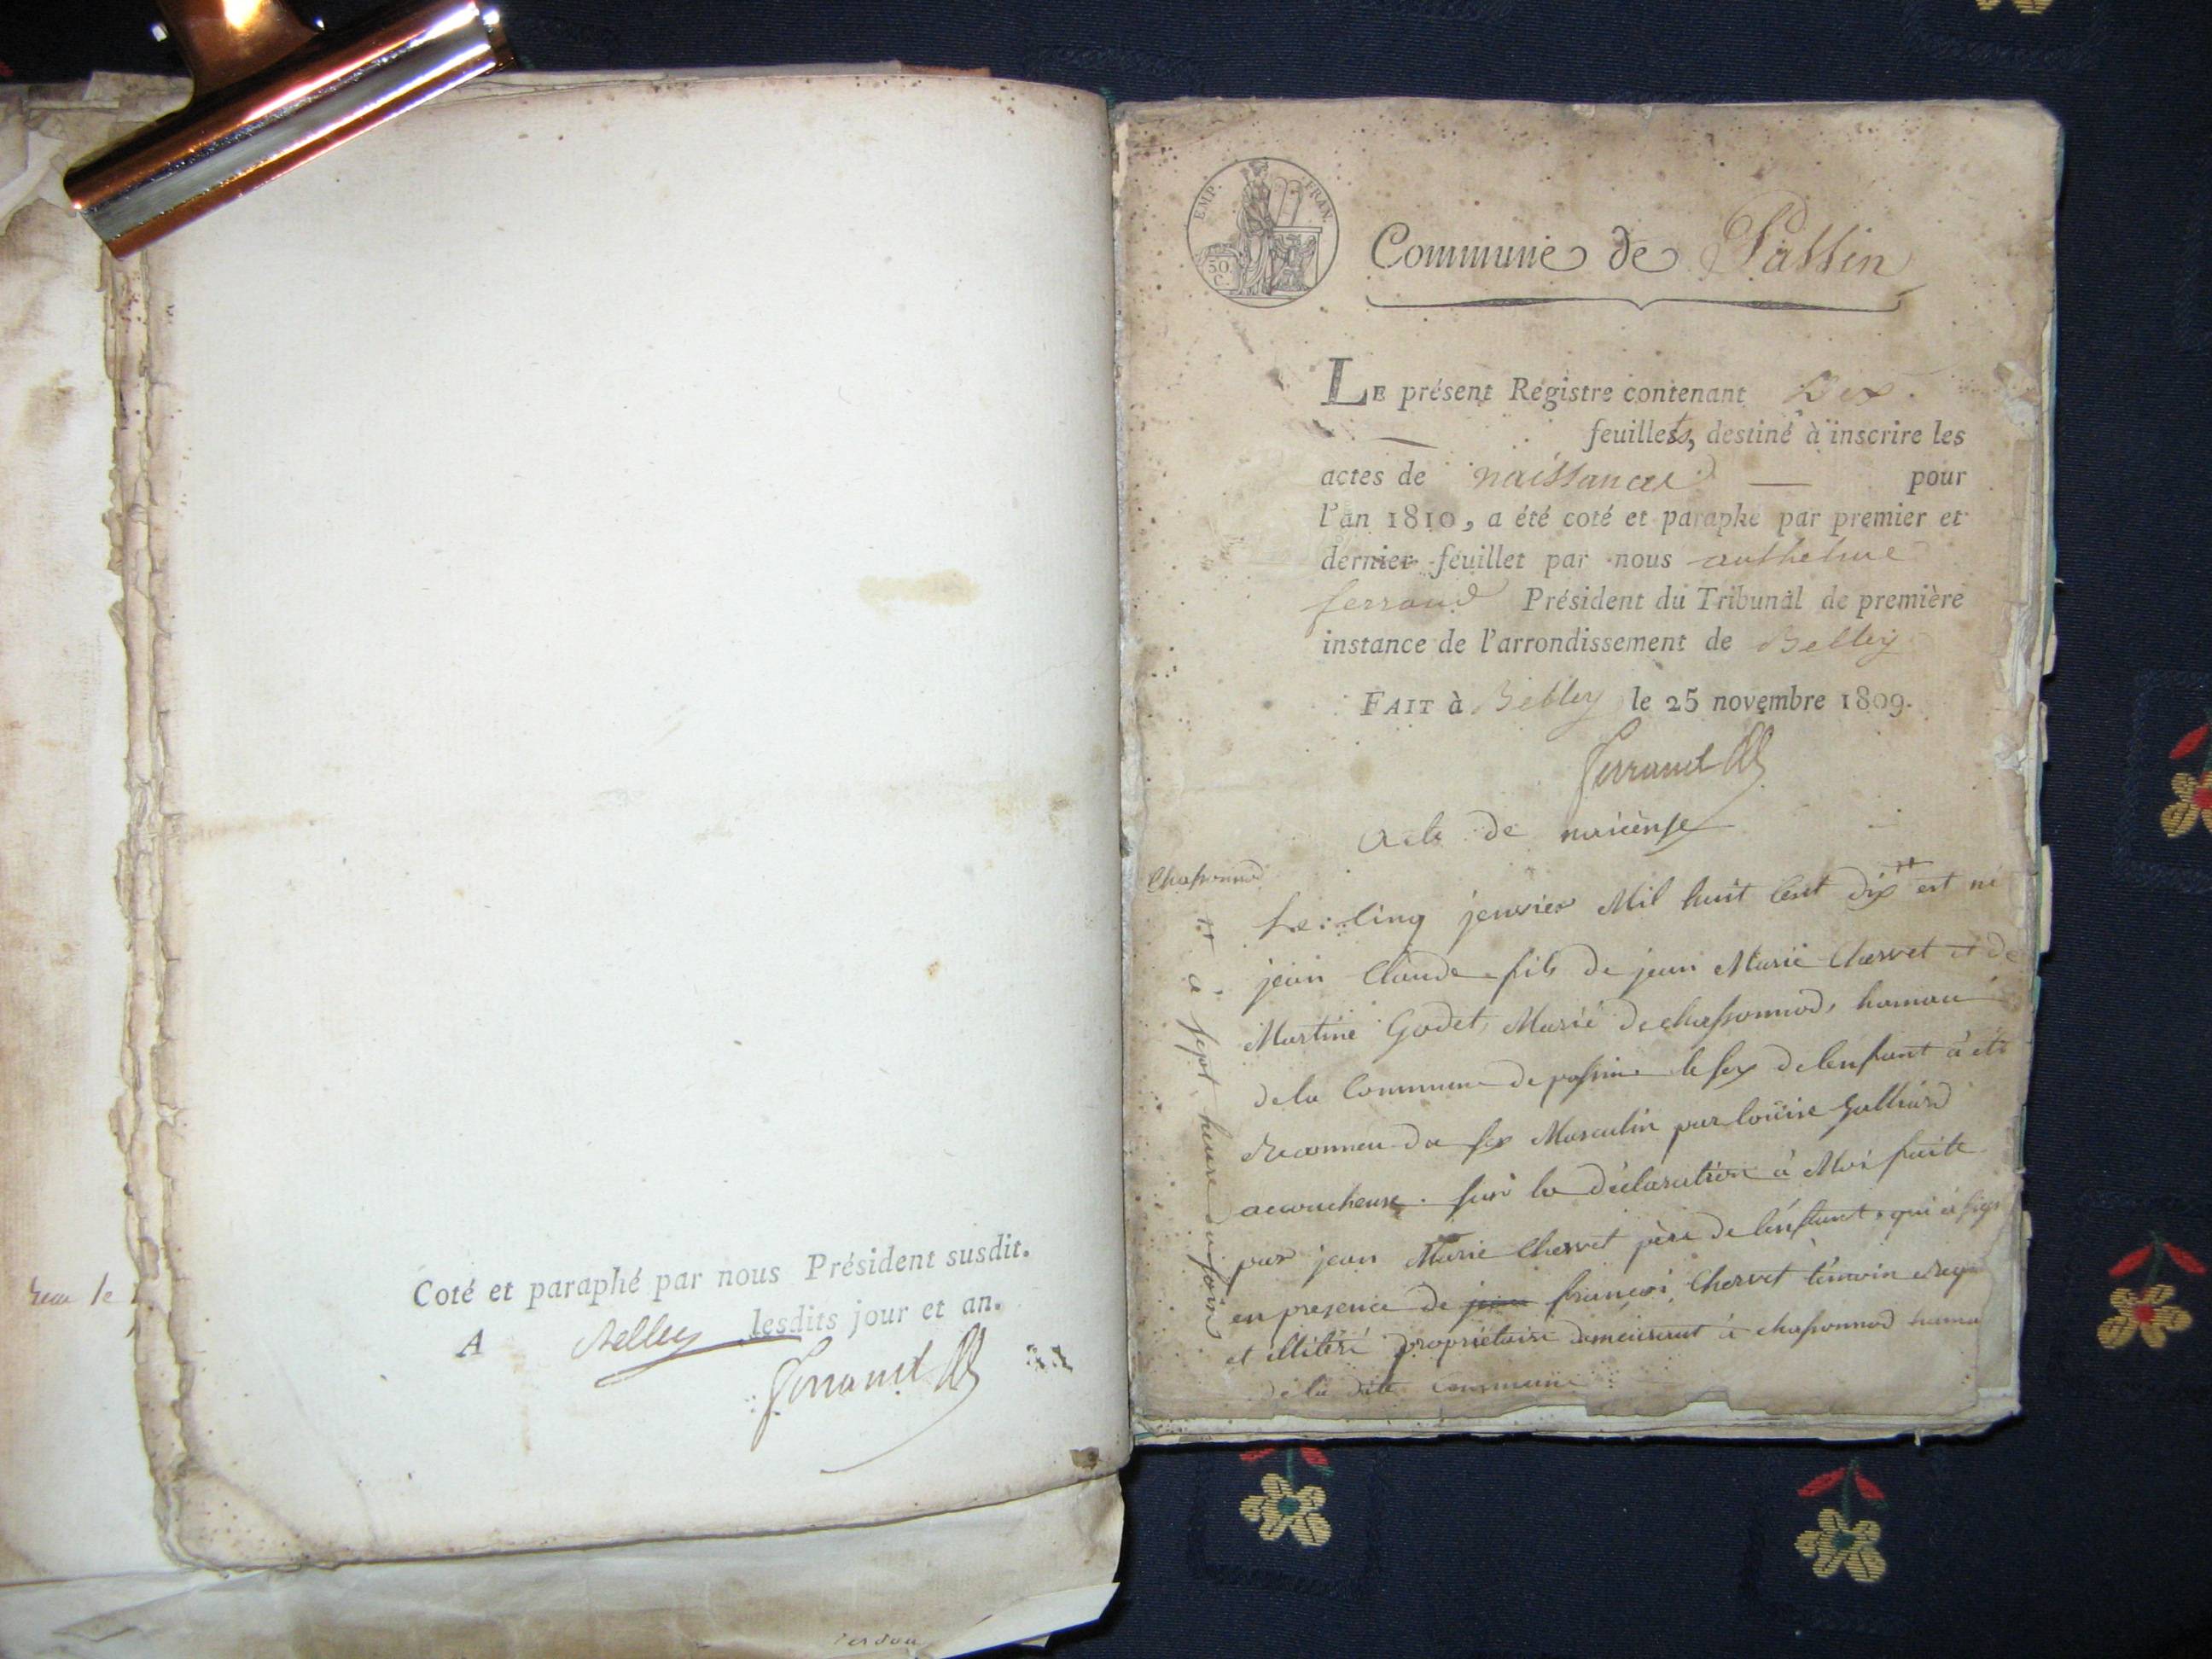 Coté et paraphé par nous Président susdit.
A Belley lesdits jour et an.
Ferrand
EMP. FRAN.
50 C.
Commune de Passin
LE présent Régistre contenant Dix
feuillets, destiné à inscrire les
actes de naissances pour
l'an 1810, a été coté et paraphé par premier et
dernier feuillet par nous anthelme
ferrand Président du Tribunal de première
instance de l'arrondissement de Belley
FAIT à Belley le 25 novembre 1809.
Ferrand
Acte de
Chassonnod
Le cinq jenvier Mil huit Cent dix est né
jean Claude fils de jean Marie Chervet et de
Martine Godet, Marié de chassonnod, hamau
de la Commune de passin le sex de lenfant à été
reconneu du sex Masculin par louise Galliard
acoucheuse. sur la déclaration à Moi faite
par jean Marie Chervet père de lenfant, qui à
en presence de françoi Chervet témoin
et proprietaire demeurent à chassonnod
de la dite Commune
a sept heure du soir